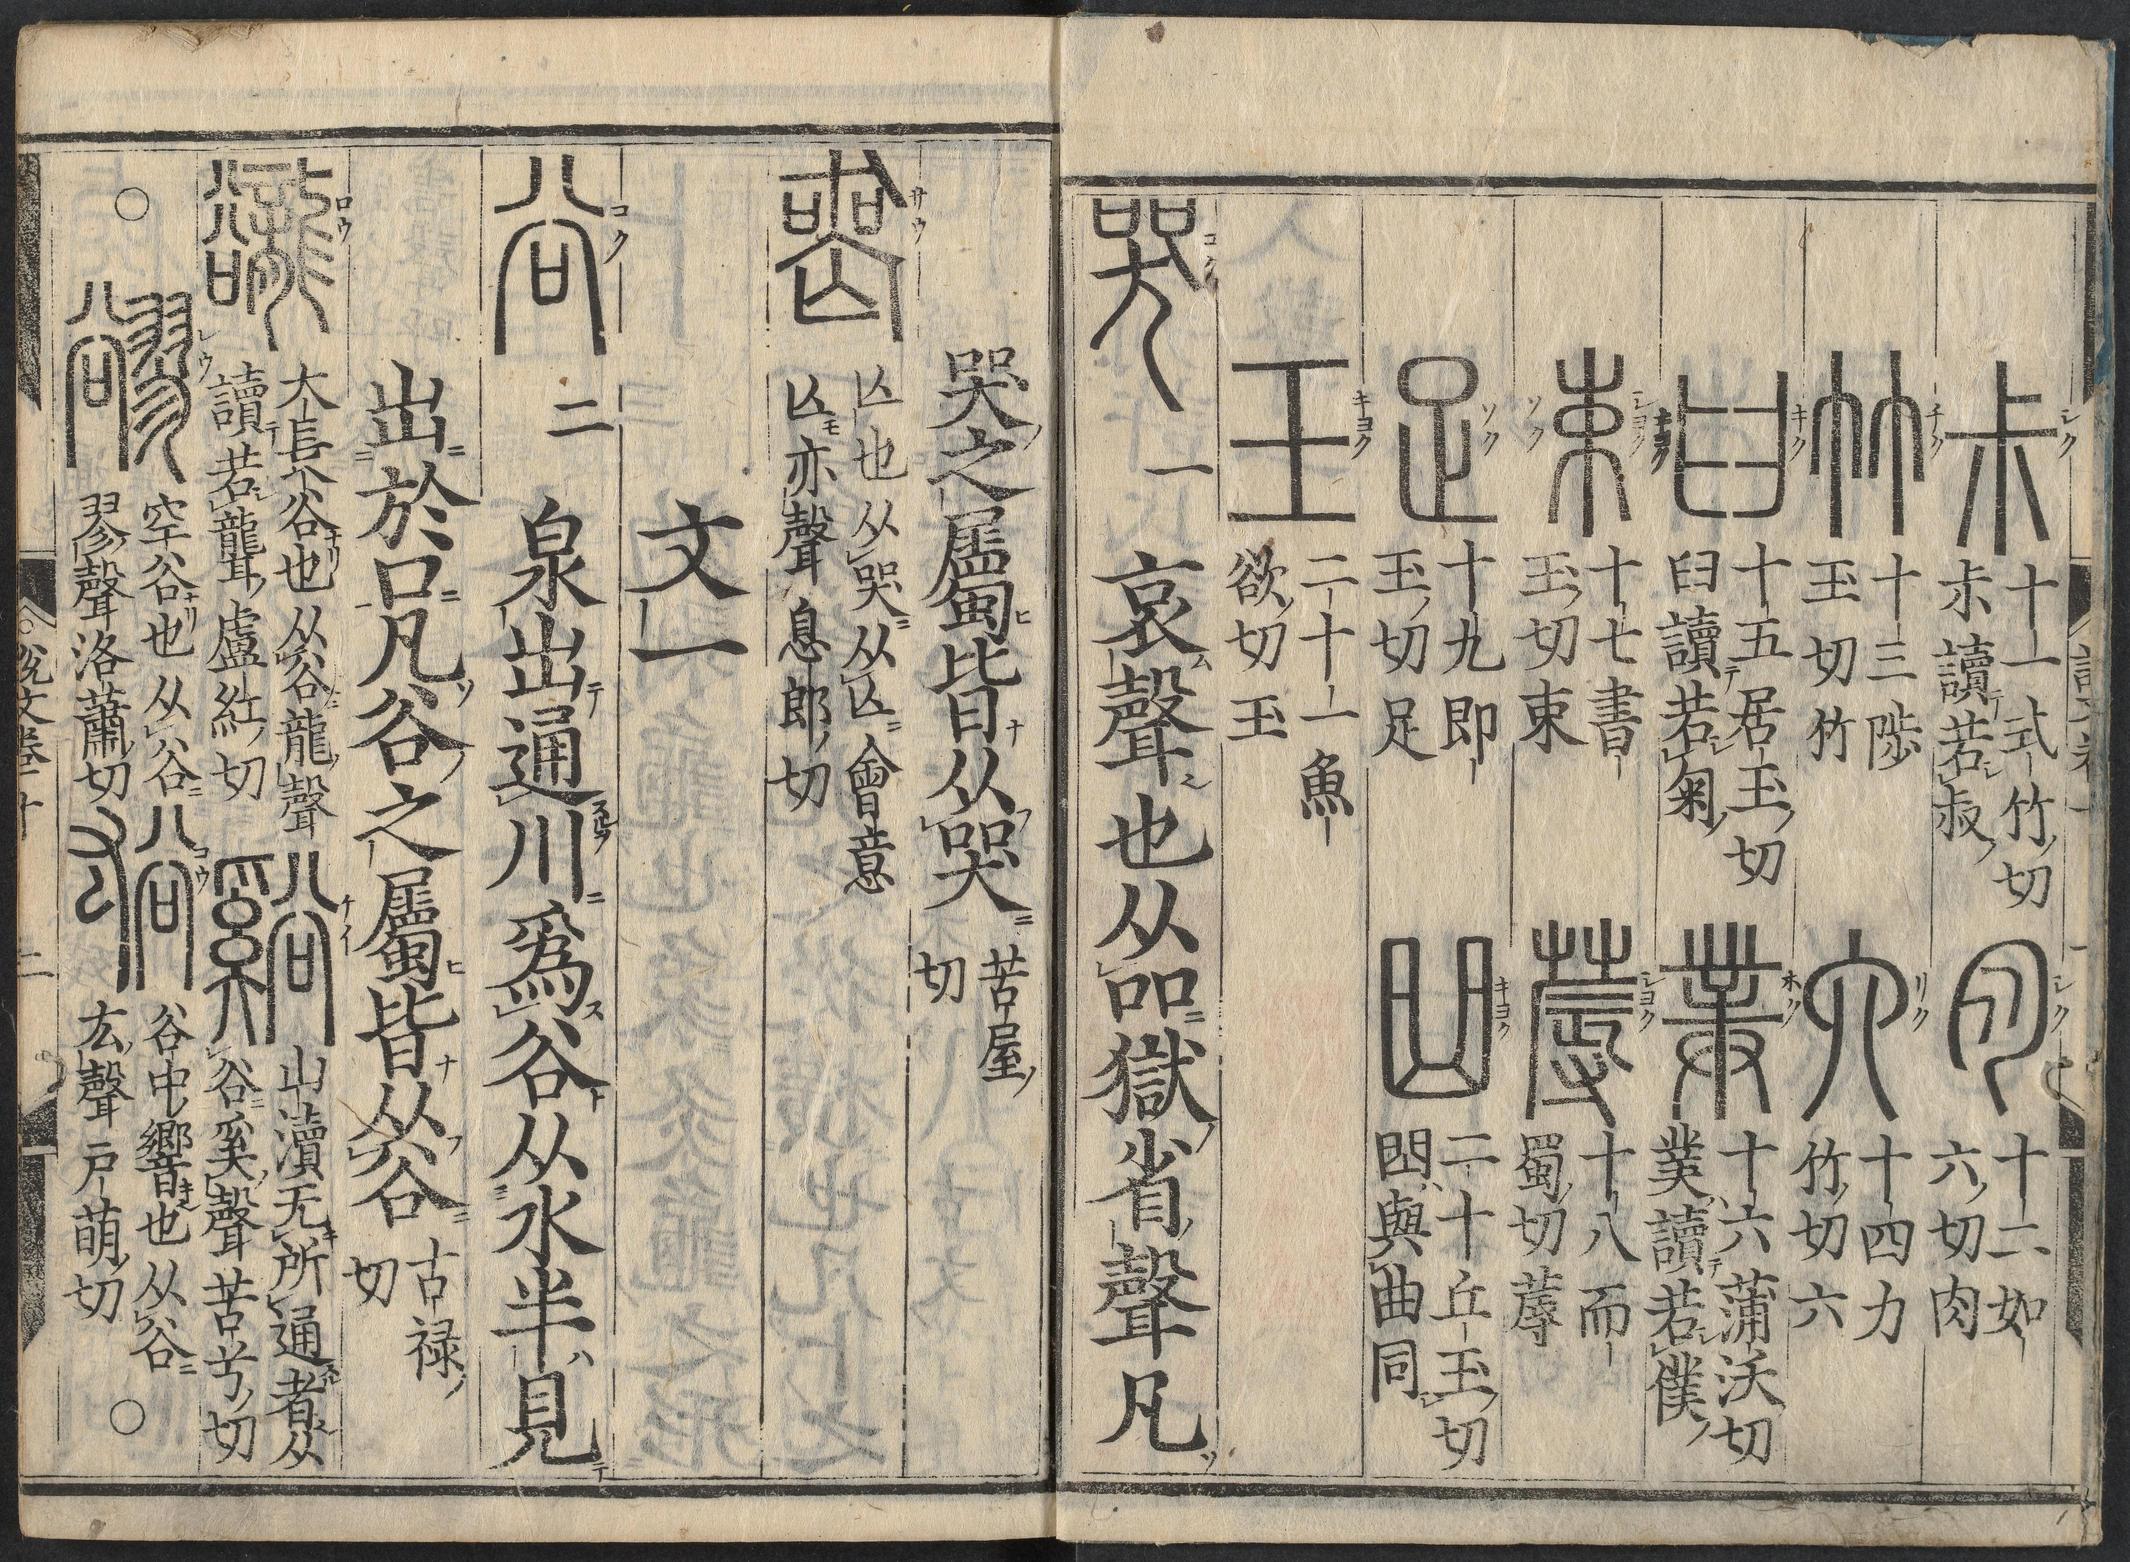 尗 十一式竹切尗讀若叔 肉 十二如六切肉
竹 十三陟玉切竹 六 十四力竹切六
𦥑 十五居玉切臼讀若匊 菐 十六蒲沃切菐讀若僕
束 十七書玉切束 蓐 十八而蜀切蓐
足 十九即玉切足 曲 二十丘玉切 與曲同
玉 二十一魚欲切玉
哭 一 哀聲也从吅獄省聲凡
哭之屬皆从哭 苦屋切
喪 亾也从哭从亾會意亾亦聲息郎切
文一
谷 二 泉出通川爲谷从水半見
出於口凡谷之屬皆从谷 古禄切
𧯏 大長谷也从谷龍聲讀若聾盧紅切 谿 山瀆无所通者从谷奚聲苦兮切
豂 空谷也从谷翏聲洛蕭切 谹 谷中響也从谷厷聲戶萌切
說文卷十 二